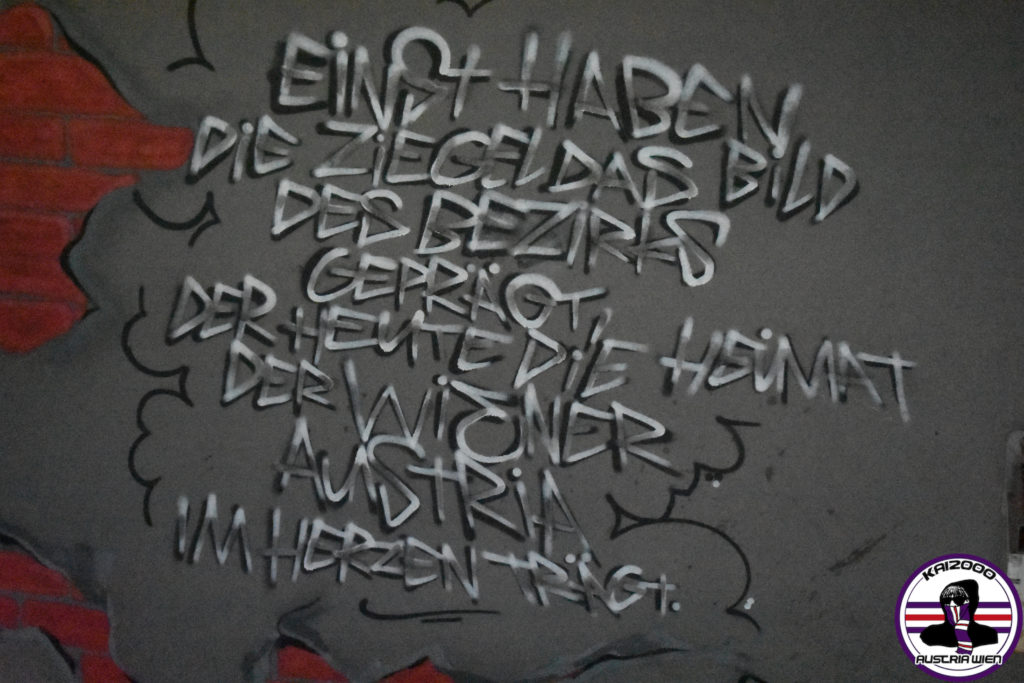 EINST HABEN
DIE ZIEGEL DAS BILD
DES BEZIRKS
GEPRÄGT,
DER HEUTE DIE HEIMAT
DER WIENER
AUSTRIA
IM HERZEN TRÄGT.
KAI2000
AUSTRIA WIEN